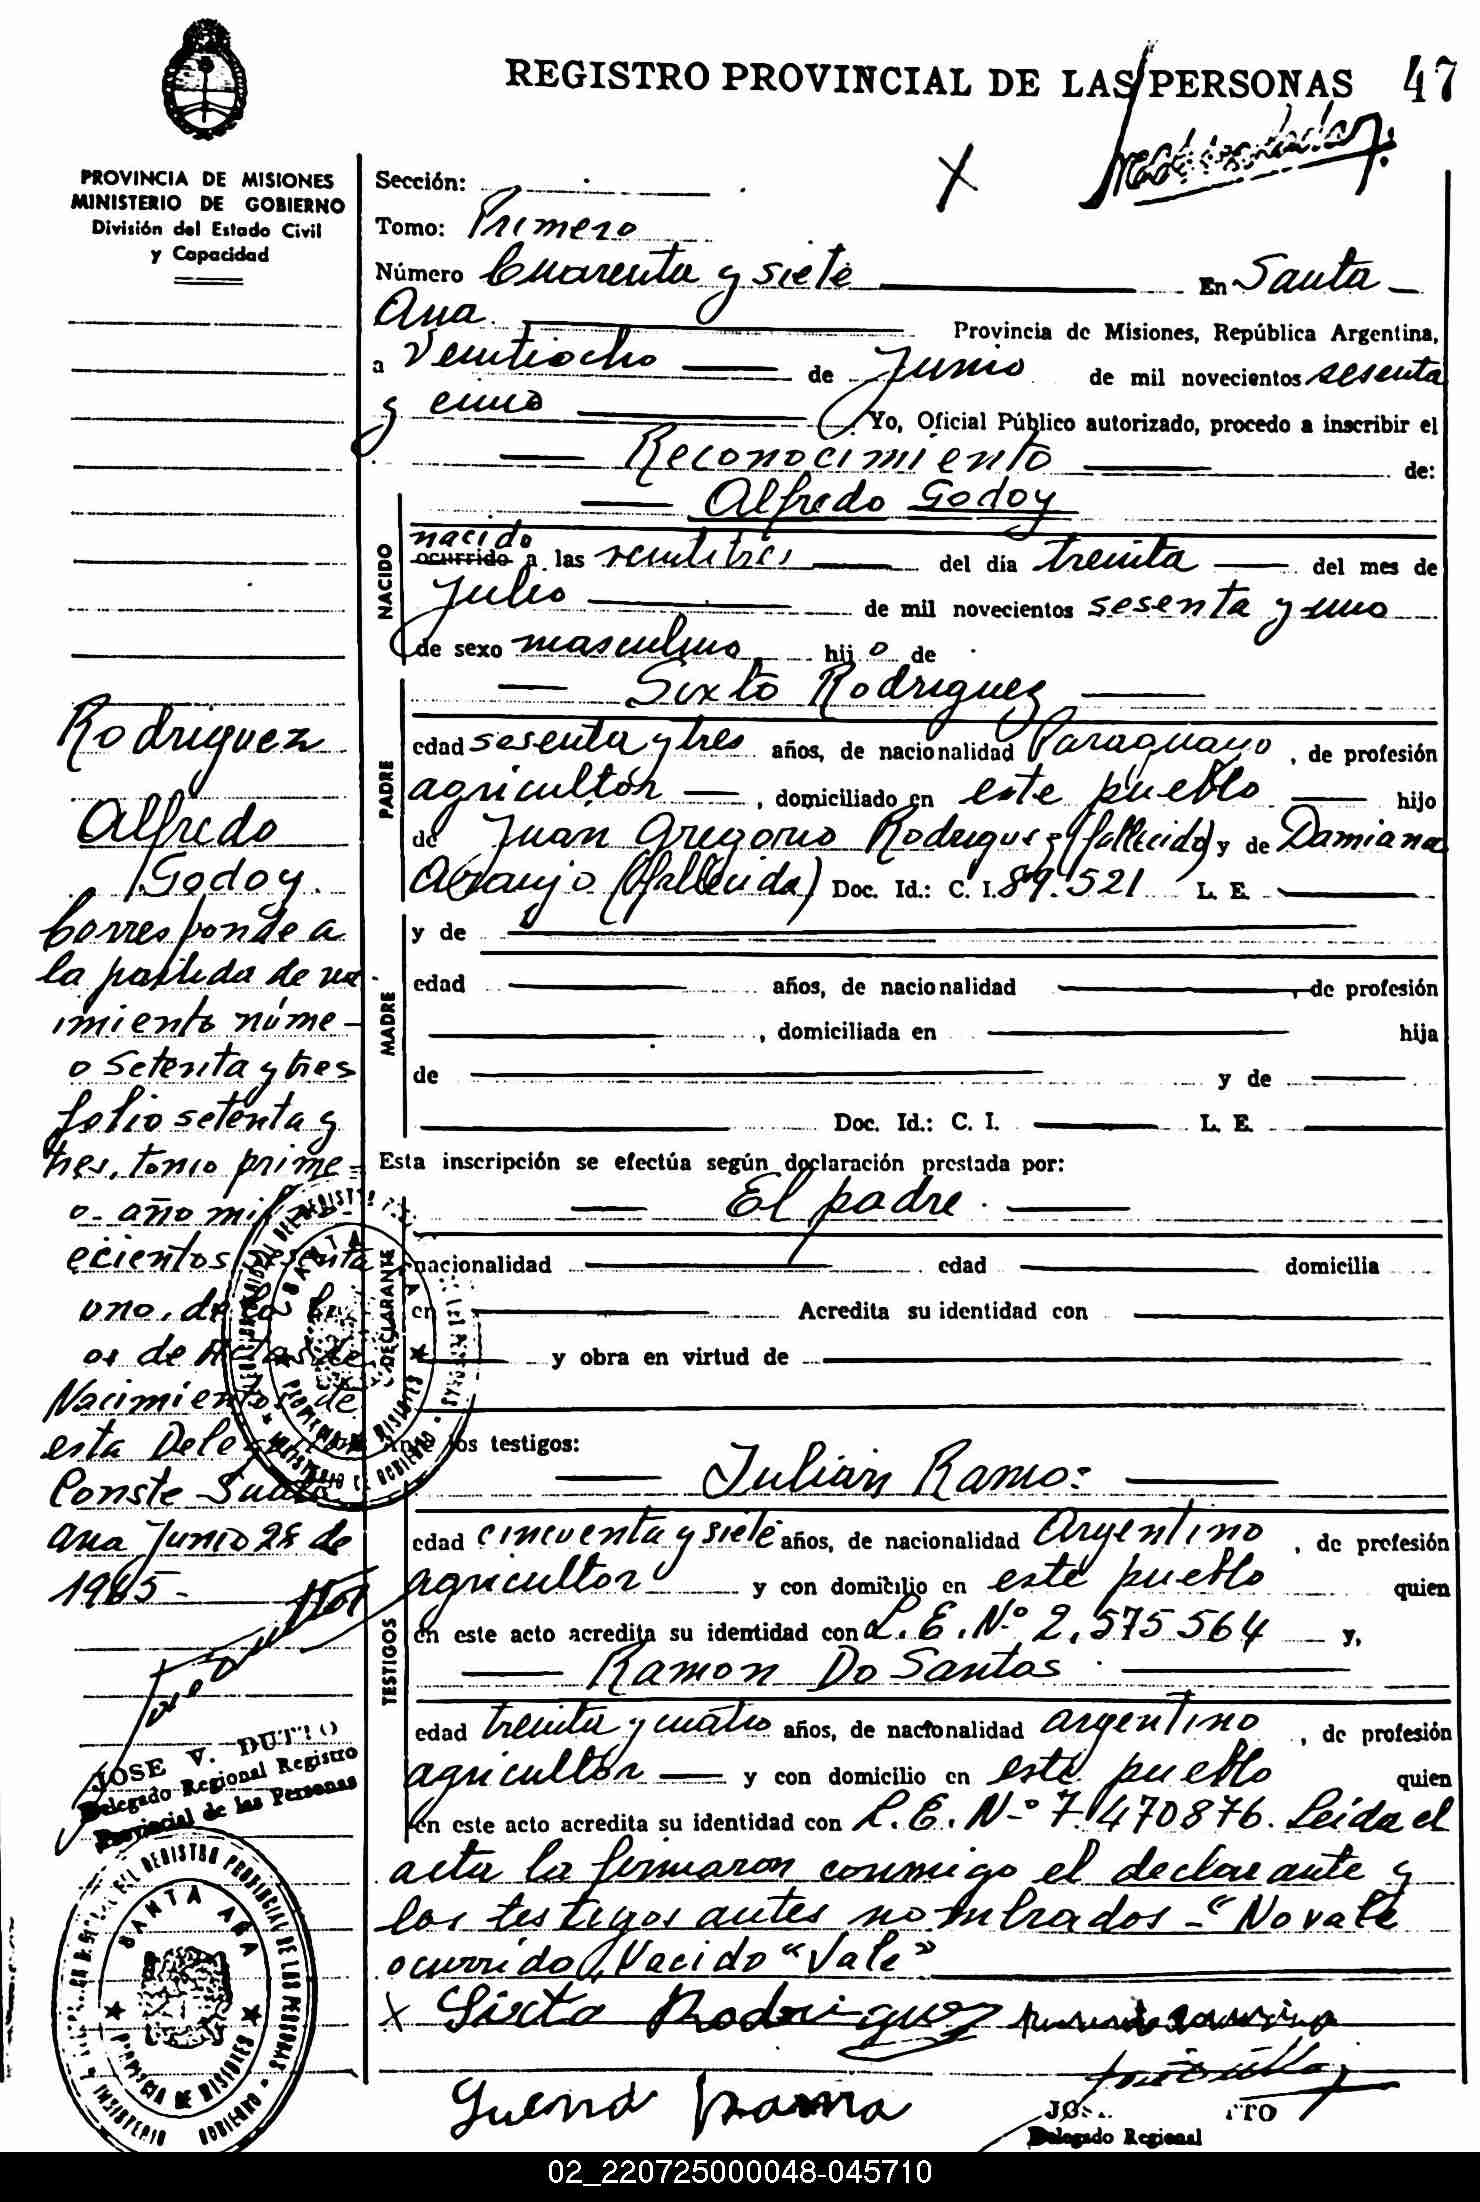 REGISTRO PROVINCIAL DE LAS PERSONAS 47
PROVINCIA DE MISIONES
MINISTERIO DE GOBIERNO
División del Estado Civil
y Capacidad
Sección:
Tomo: Primero
Número Cuarenta y siete En Santa
Ana. Provincia de Misiones, República Argentina,
a Veintiocho de Junio de mil novecientos sesenta
y cinco Yo, Oficial Público autorizado, procedo a inscribir el
Reconocimiento de:
Alfredo Godoy
NACIDO
nacido
ocurrido a las veintitres del día treinta del mes de
Julio de mil novecientos sesenta y uno
de sexo masculino hijo de
Sixto Rodriguez
PADRE
edad sesenta y tres años, de nacionalidad Paraguayo, de profesión
agricultor, domiciliado en este pueblo hijo
de Juan Gregorio Rodriguez (fallecido) y de Damiana
Araujo (fallecida) Doc. Id.: C. I. 89.521 L. E.
MADRE
y de
edad años, de nacionalidad, de profesión
, domiciliada en hija
de y de
Doc. Id.: C. I. L. E.
Esta inscripción se efectúa según declaración prestada por:
El padre.
DECLARANTE
nacionalidad edad domicilia
en Acredita su identidad con
y obra en virtud de
Ante los testigos:
Julian Ramos
TESTIGOS
edad cincuenta y siete años, de nacionalidad Argentino, de profesión
agricultor y con domicilio en este pueblo quien
en este acto acredita su identidad con L.E. Nº 2.575564 y,
Ramon Do Santos
edad treinta y cuatro años, de nacionalidad argentino, de profesión
agricultor y con domicilio en este pueblo quien
en este acto acredita su identidad con L.E. Nº 7.470876. Leída el
acta la firmaron conmigo el declarante y
los testigos antes nombrados - "No vale
ocurrido, Nacido "Vale"
X Sixto Rodriguez
Delegado Regional
Rodriguez
Alfredo
Godoy.
Corresponde a
la partida de na
imiento núme-
o Setenta y tres
folio setenta y
tres, tomo prime=
o- año mil
ecientos sesenta
uno, de
os de Actas de
Nacimientos de
esta Delegación
Conste Santa
Ana Junio 28 de
1965-
JOSE V. DUTTO
Delegado Regional Registro
Provincial de las Personas
SANTA ANA
PROVINCIA DE MISIONES
DEL REGISTRO PROVINCIAL DE LAS PERSONAS
MINISTERIO DE GOBIERNO
02_220725000048-045710